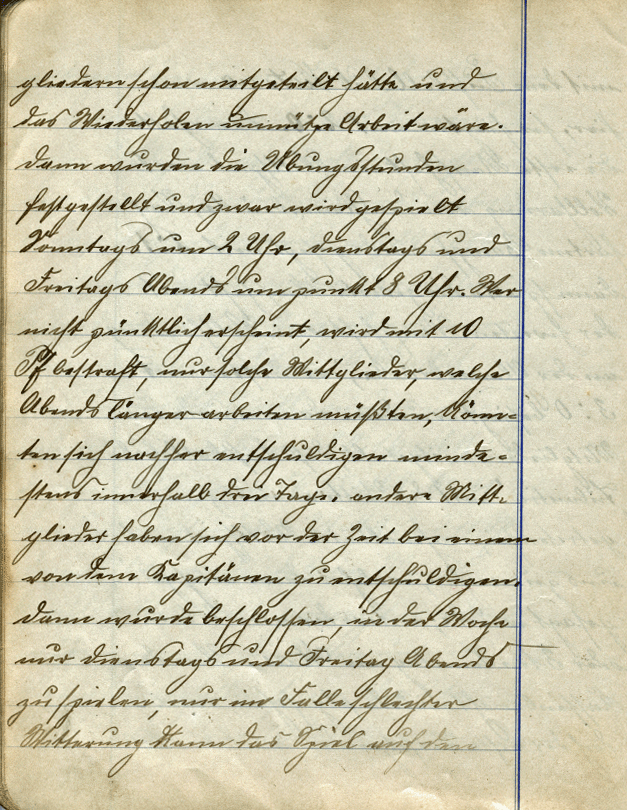 gliedern schon mitgeteilt hätte und
das Wiederholen unnütze Arbeit wäre.
Dann wurden die Übungsstunden
festgestellt und zwar wird gespielt
Sonntags um 2 Uhr, Dienstags und
Freitags Abends um punkt 8 Uhr. Wer
nicht pünktlich erscheint, wird mit 10
Pf bestraft, nur solche Mittglieder, welche
Abends länger arbeiten müßten, könn-
ten sich nachher entschuldigen minde-
stens innerhalb drei Tage. andere Mitt-
glieder haben sich vor der Zeit bei einem
von dem Kapitänen zu entschuldigen.
Dann wurde beschlossen, in der Woche
nur Dienstags und Freitag Abends
zu spielen, nur im Falle schlechter
Witterung kann das Spiel auf den